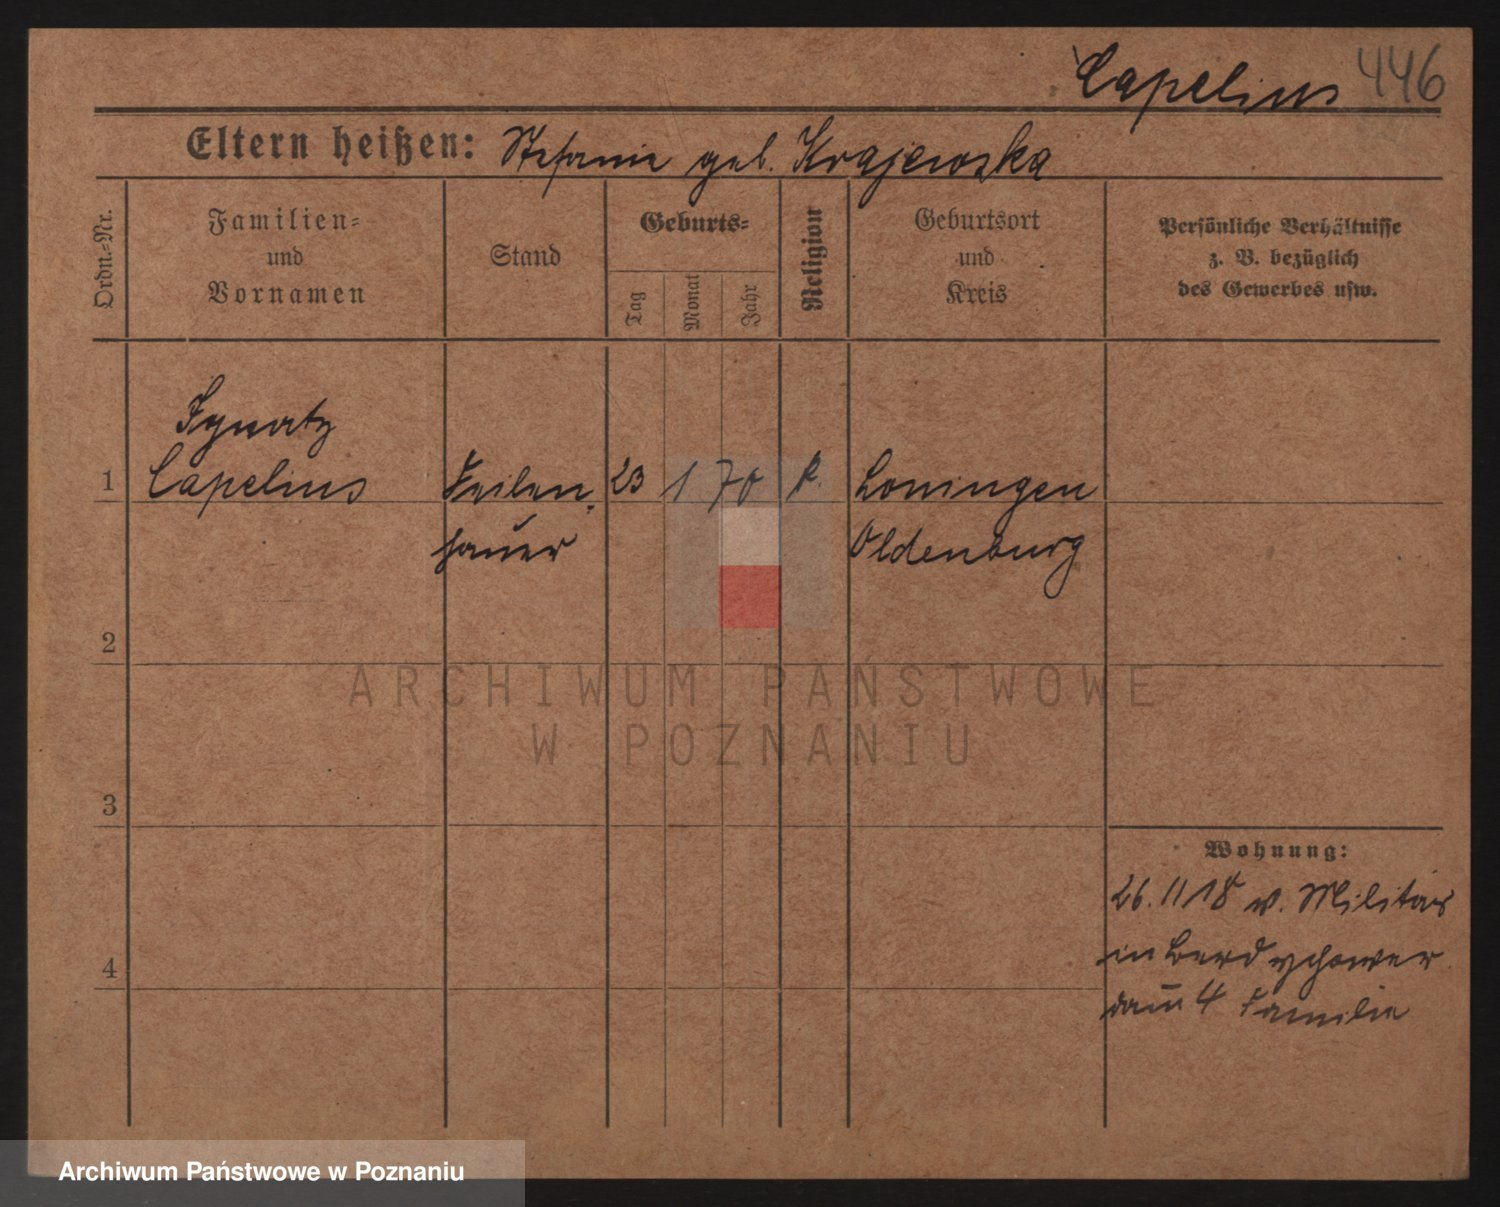 Capelius 446
Eltern heißen: Stefanie geb. Krajewska
Ordn.-Nr.
Familien-
und
Vornamen
Stand
Geburts-
Tag
Monat
Jahr
Religion
Geburtsort
und
Kreis
Persönliche Verhältnisse
z. B. bezüglich
des Gewerbes usw.
Ignatz
1 Capelius Feilen- 23 1 70 k. Loningen
hauer Oldenburg
2
3
4
Wohnung:
26.11 18 v. Militär
in Berdychower
dam 4 Familie
ARCHIWUM PAŃSTWOWE
W POZNANIU
Archiwum Państwowe w Poznaniu